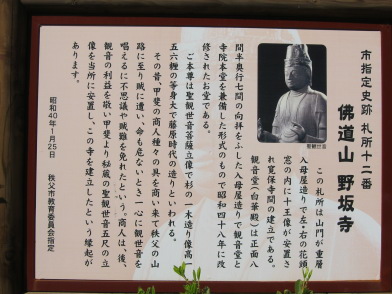 市指定史跡 札所十二番
佛道山 野坂寺
聖観世音
この札所は山門が重層
入母屋造りで左・右の花頭
窓の内に十王像が安置さ
れ寛保寺間の建立である。
観音堂(白華殿)は正面八
間半奥行七間の向拝をふした入母屋造りで観音堂と
寺院本堂を兼備した形式のもので昭和四十八年に改
修されたお堂である。
ご本尊は聖観世音菩薩立像で杉の一木造り像高一
五六糎の等身大で藤原時代の造りといわれる。
その昔、甲斐の商人種々の具を商い来て秩父の山
路に至り賊に遭い、命も危ないとき一心に観世音を
唱えるに不思議や賊難を免れたという。商人は、後、
観音の利益を敬い甲斐より秘蔵の聖観世音五尺の立
像を当所に安置し、この寺を建立したという縁起が
あります。
昭和40年1月25日
秩父市教育委員会指定